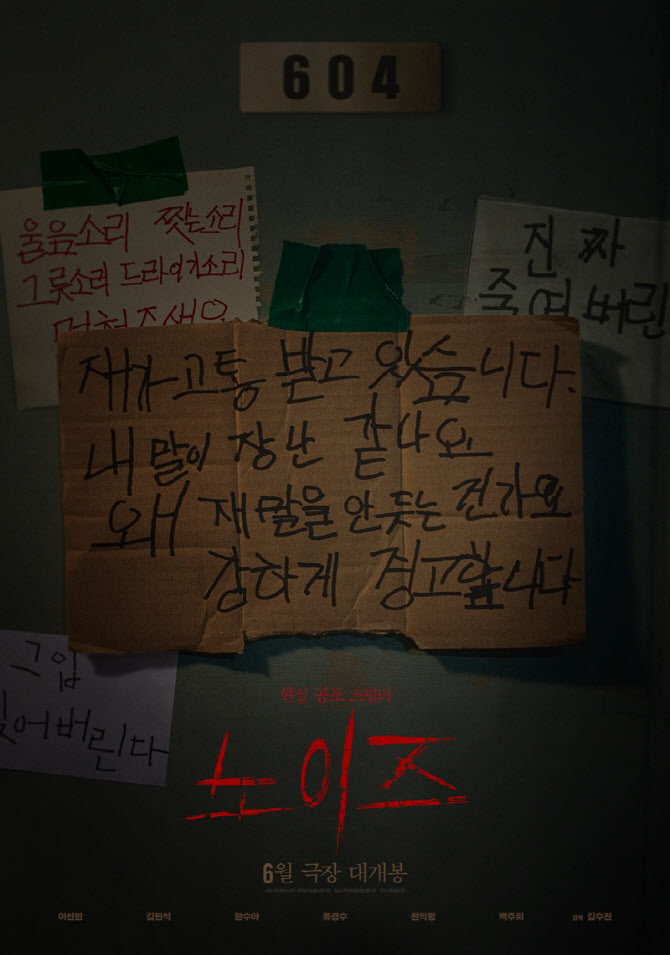 604
울음소리 찟는소리
그릇소리 드라이기소리
진짜
죽여버린
재가 고통 받고 있슴니다.
내 말이 장난 같나요
왜 재 말을 안 듯는 건가요
강하게 경고합니다
그입
찢어버린다
현실 공포 스릴러
노이즈
6월 극장 대개봉
이선빈 김민석 한수아 류경수 전익령 백주희 감독 김수진